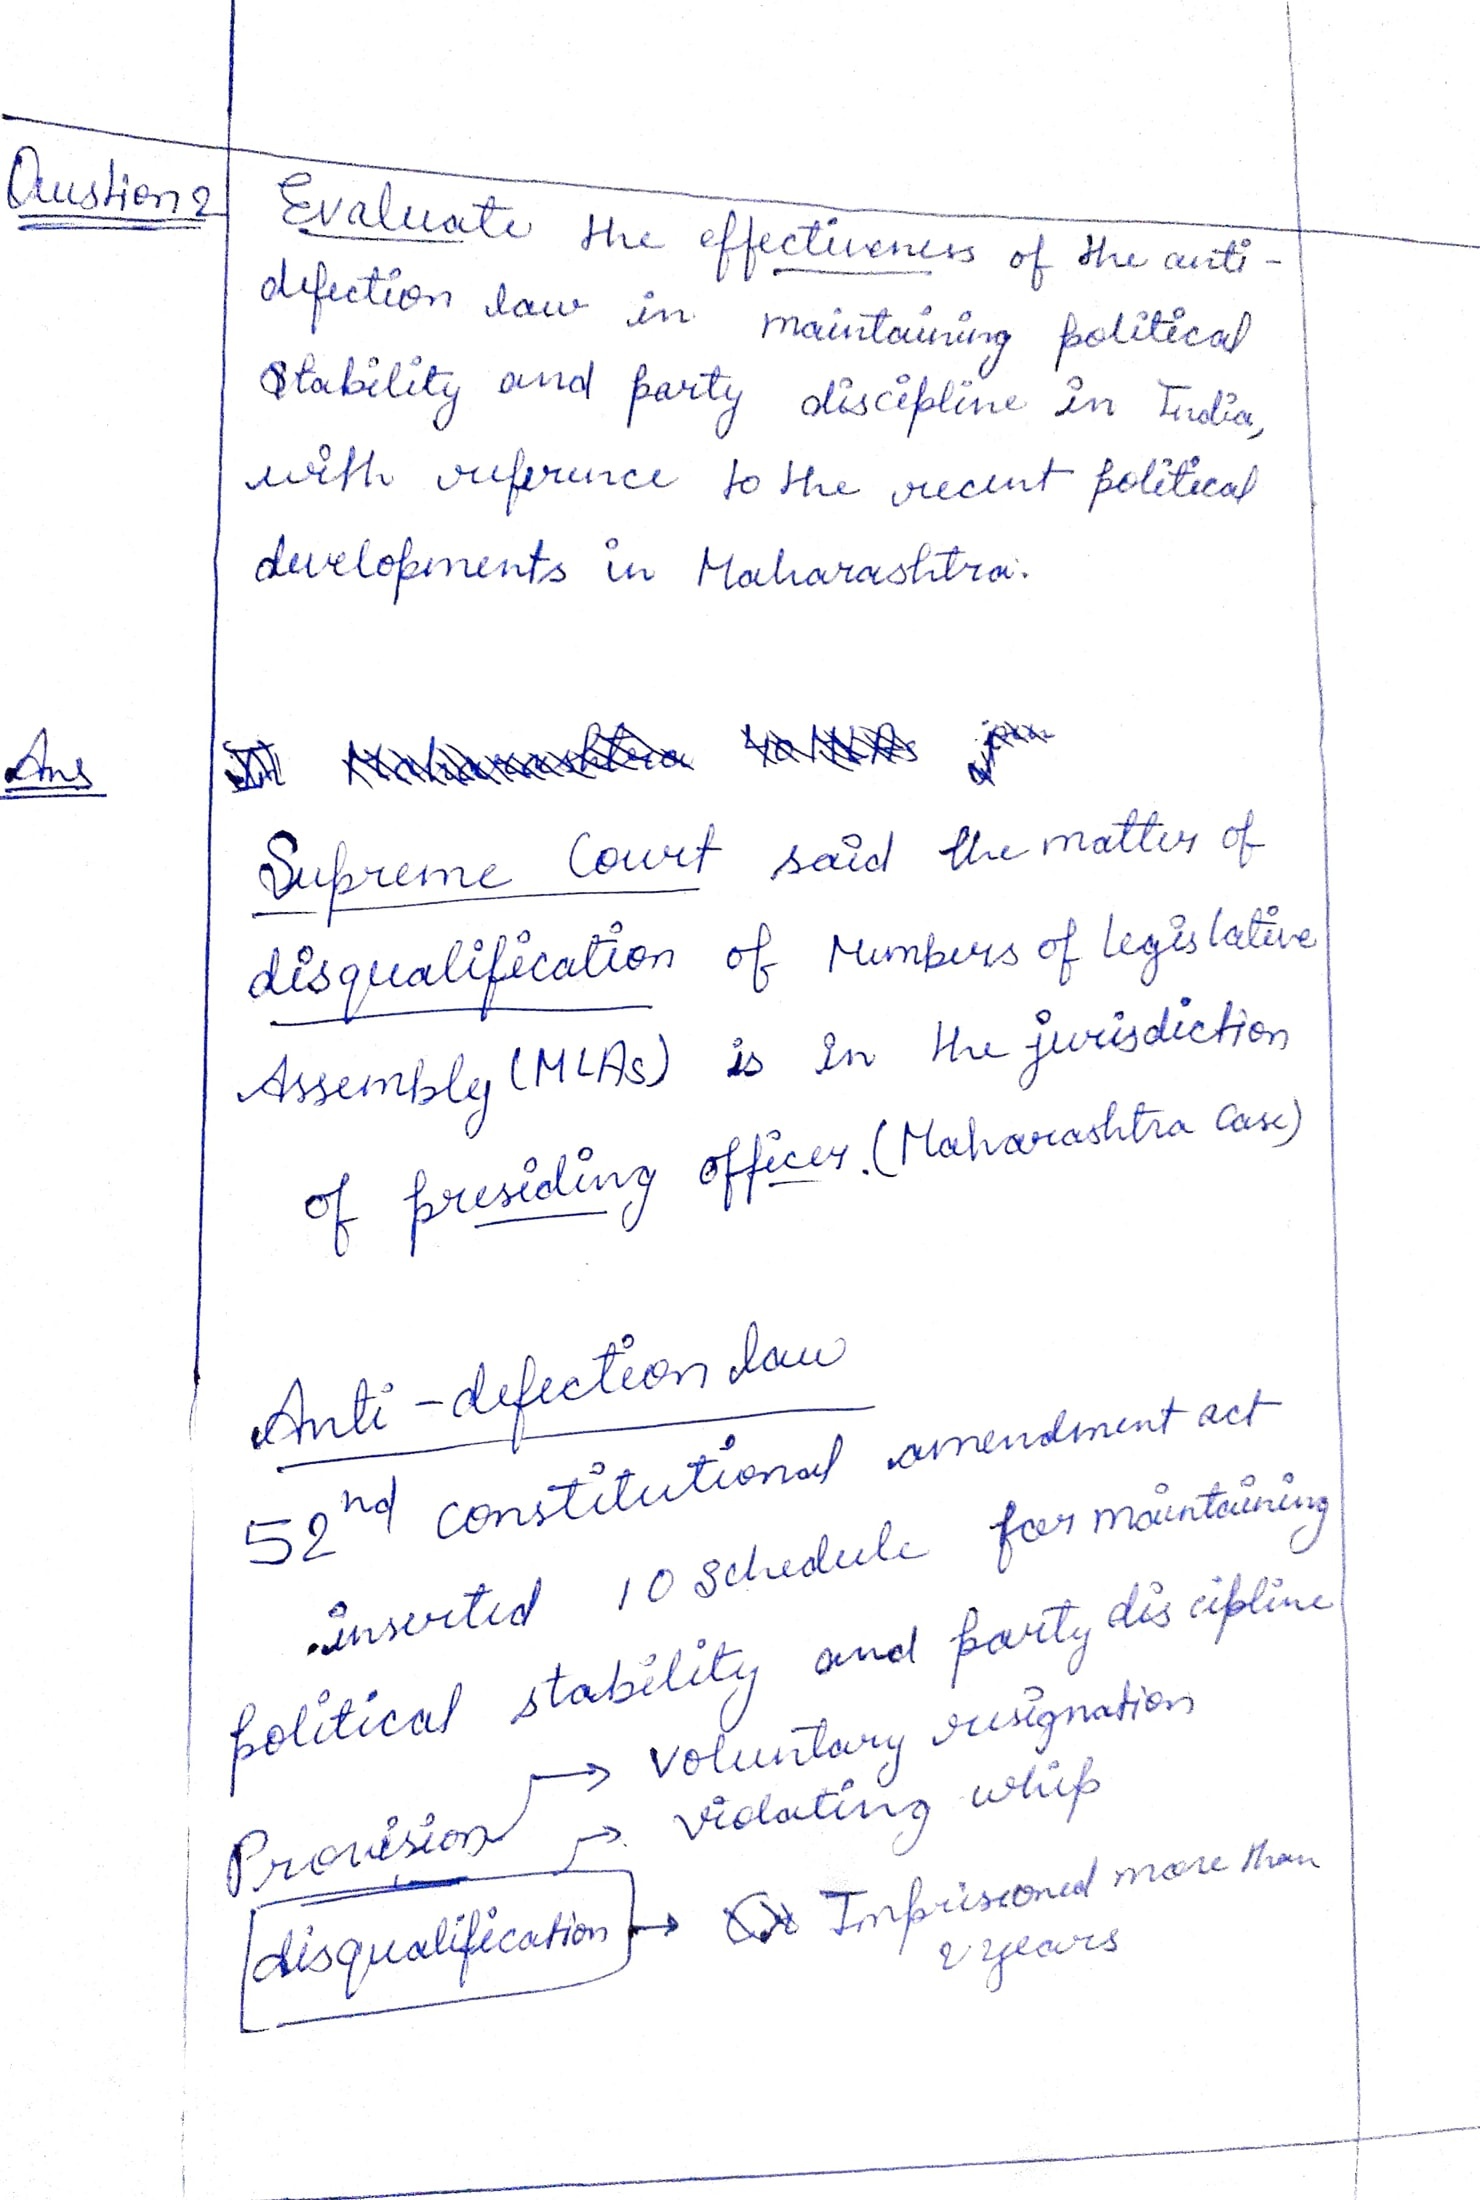 Question 2
Evaluate the effectiveness of the anti-
defection law in maintaining political
stability and party discipline in India,
with reference to the recent political
developments in Maharashtra.
Ans
Supreme Court said the matter of
disqualification of Members of Legislative
Assembly (MLAs) is in the jurisdiction
of presiding officer. (Maharashtra Case)
Anti-defection law
52nd constitutional amendment act
inserted 10 Schedule for maintaining
political stability and party discipline
Provision → voluntary resignation
→ violating whip
disqualification → Imprisioned more than
2 years